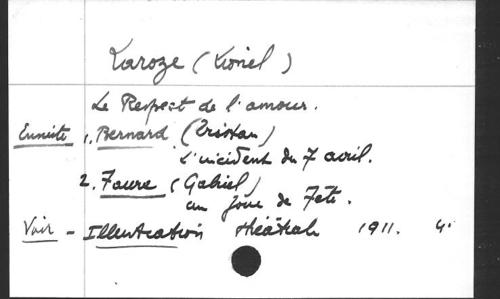 Laroze (Lionel)
Le Respect de l'amour.
Ensuite 1. Bernard (Tristan)
L'incident du 7 avril.
2. Faure (Gabriel)
un jour de Fête.
Voir - Illustration théâtrale 1911. 4°